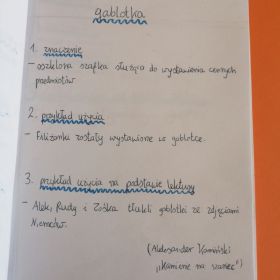 gablotka
1. znaczenie
- oszklona szafka służąca do wystawiania cennych
przedmiotów.
2. przykład użycia
- Filiżanki zostały wystawione w gablotce.
3. przykład użycia na podstawie lektury
- Alek, Rudy i Zośka tłukli gablotki ze zdjęciami
Niemców.
(Aleksander Kamiński
"Kamienie na szaniec")